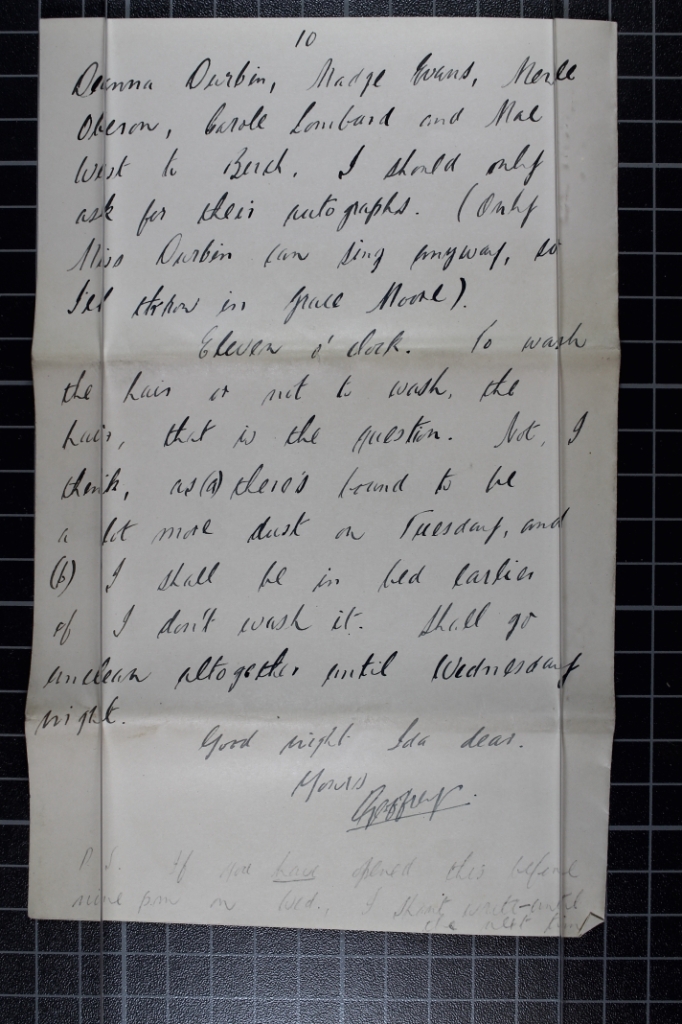 10
Deanna Durbin, Madge Evans, Merle
Oberon, Carole Lombard and Mae
West to Berch. I should only
ask for their autographs. (Only
Miss Durbin can sing anyway, so
I'd throw in Grace Moore).
Eleven o'clock. To wash
the hair or not to wash, the
hair, that is the question. Not, I
think, as (a) there's bound to be
a lot more dust on Tuesday, and
(b) I shall be in bed earlier
if I don't wash it. Shall go
unclean altogether until Wednesday
night.
Good night Ida dear.
Yours
Geoffrey.
P.S. If you have opened this before
nine pm on Wed., I shan't write until
the next